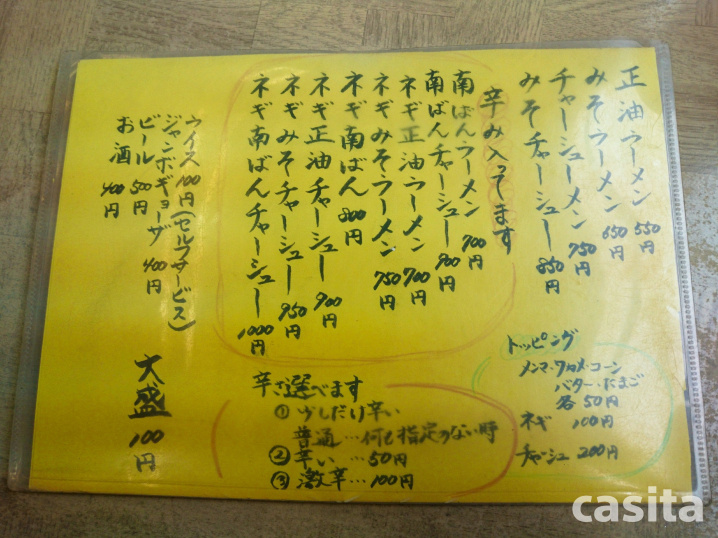 正油ラーメン 550円
みそラーメン 650円
チャーシューメン 750円
みそチャーシュー 850円
辛み入ってます
南ばんラーメン 700円
南ばんチャーシュー 900円
ネギ正油ラーメン 700円
ネギみそラーメン 750円
ネギ南ばん 800円
ネギ正油チャーシュー 900円
ネギみそチャーシュー 950円
ネギ南ばんチャーシュー 1000円
ライス 100円(セルフサービス)
ジャンボギョーザ 400円
ビール 500円
お酒 400円
トッピング
メンマ・ワカメ・コーン
バター・たまご
各50円
ネギ 100円
チャーシュ 200円
辛さ選べます
①少しだけ辛い
普通…何も指定のない時
②辛い…50円
③激辛…100円
大盛 100円
casita